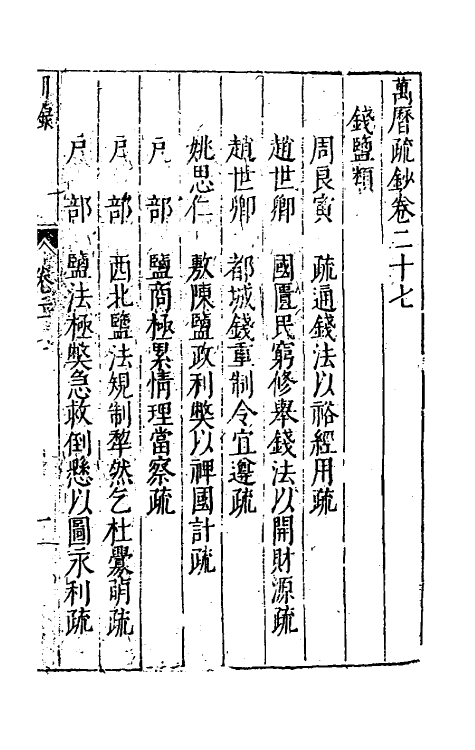 萬曆疏鈔卷二十七
錢鹽類
周良寅 疏通錢法以裕經用疏
趙世卿 國匱民窮修舉錢法以開財源疏
趙世卿 都城錢重制令宜遵疏
姚思仁 敷陳鹽政利獘以裨國計疏
戶部 鹽商極累情理當察疏
戶部 西北鹽法規制犂然乞杜釁萌疏
戶部 鹽法極獘急救倒懸以圖永利疏
目錄 卷二十七 一